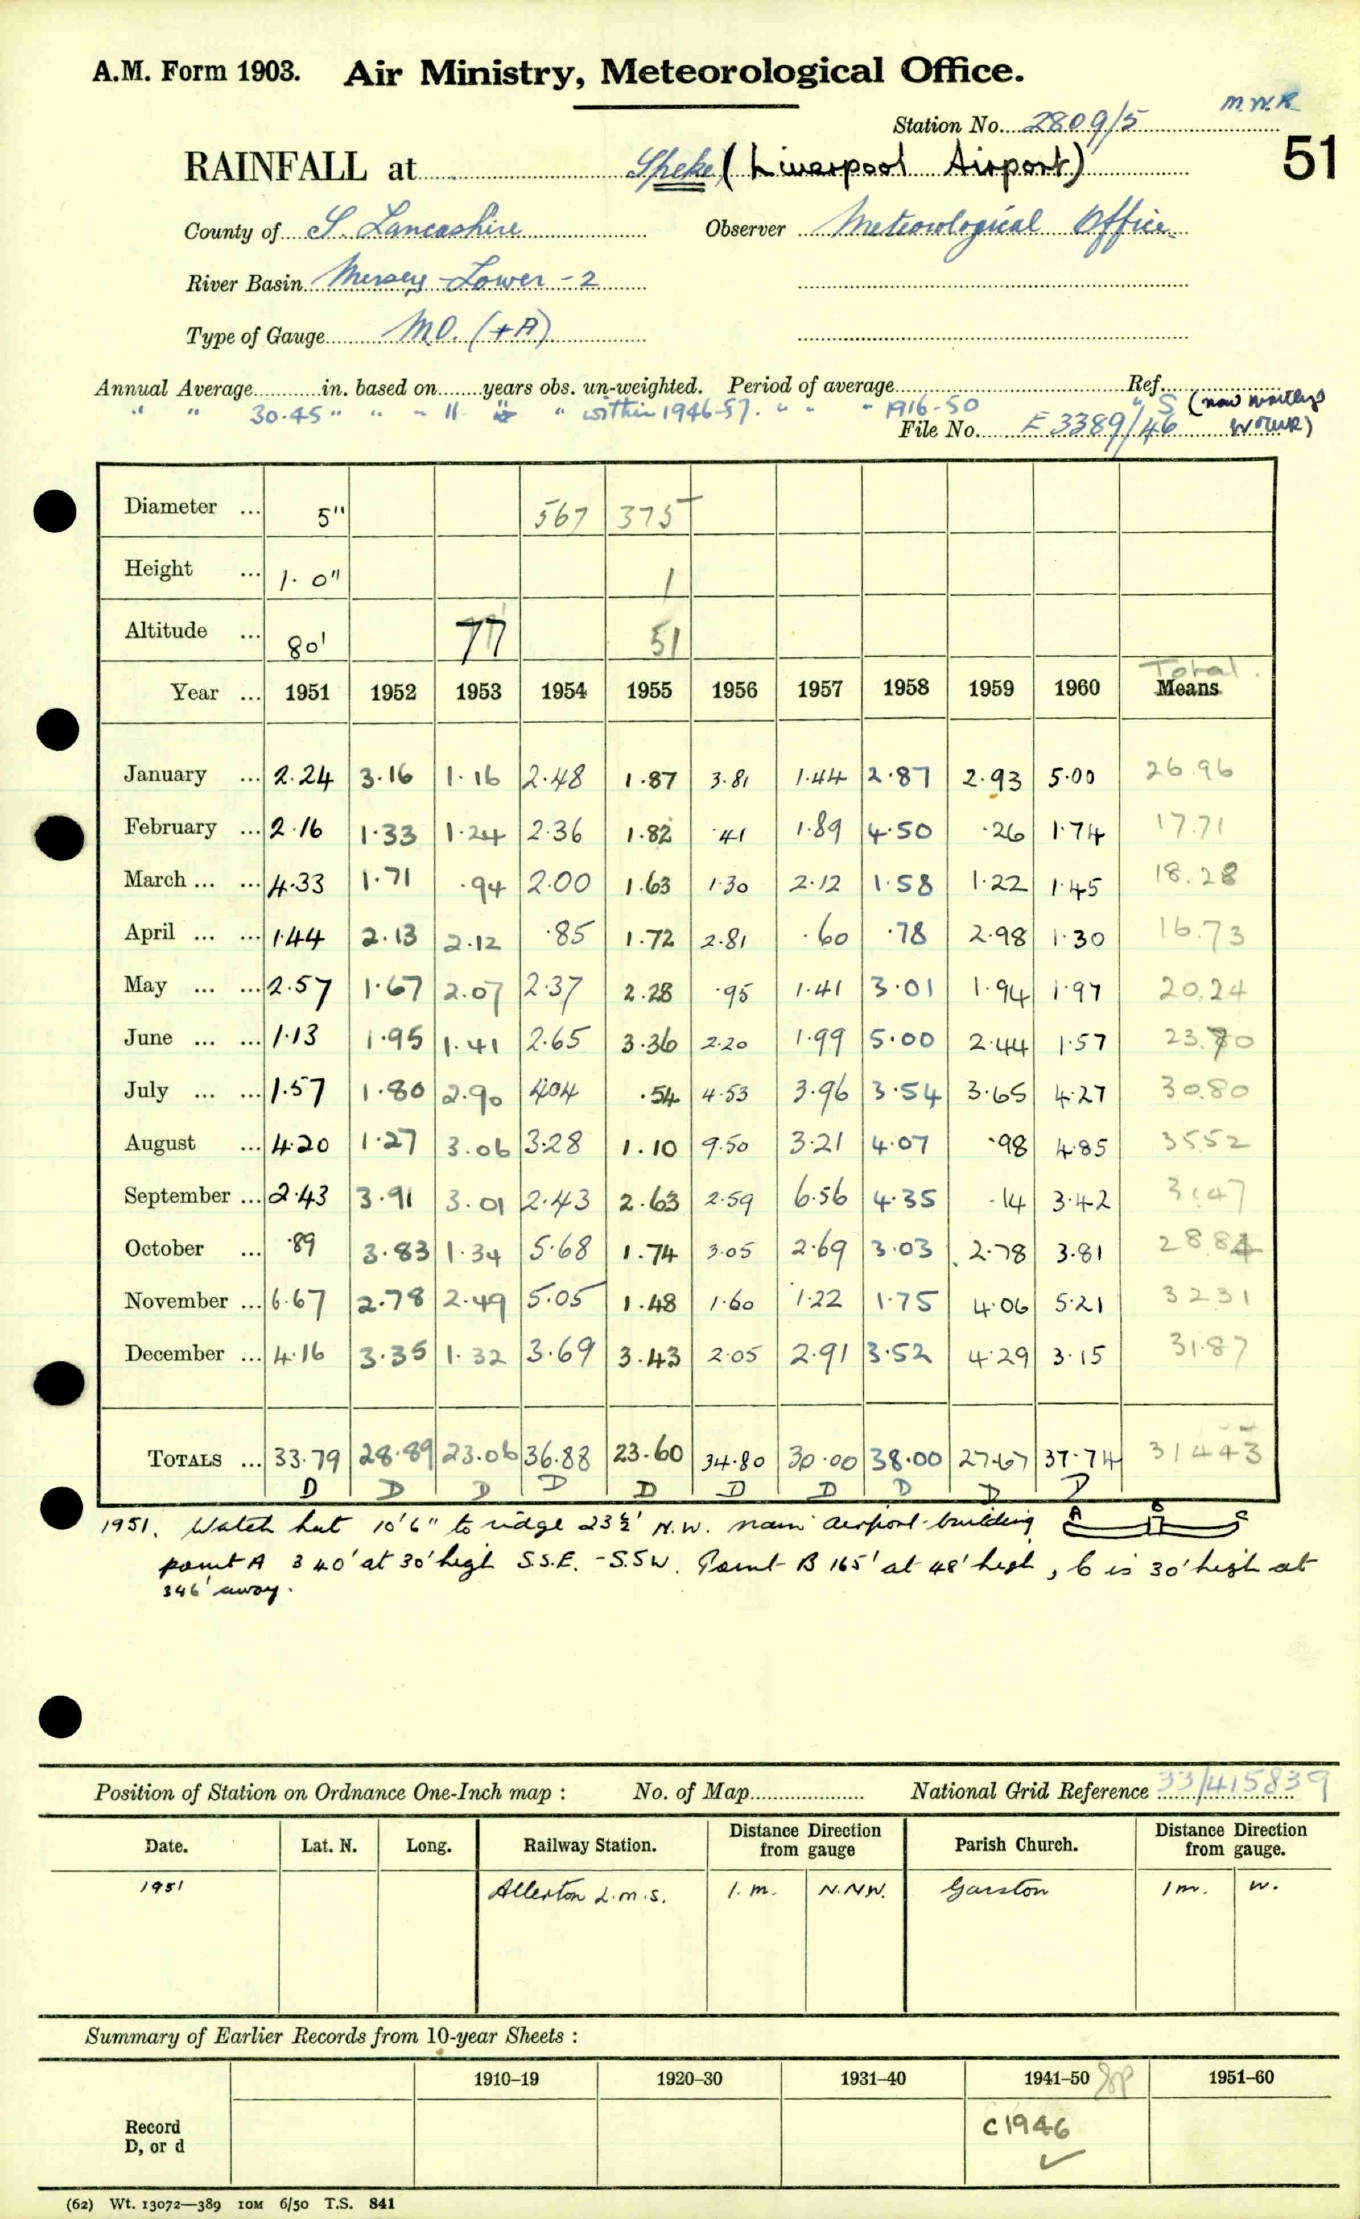 A.M. Form 1903. Air Ministry, Meteorological Office.
M.W.R.
Station No. 2809/5
51
RAINFALL at Speke (Liverpool Airport)
County of S. Lancashire Observer Meteorological Office.
River Basin Mersey - Lower - 2
Type of Gauge M.O. (+A)
Annual Average in. based on years obs. un-weighted. Period of average Ref.
" " 30.45 " " " 11 " " within 1946-57. " " " 1916-50 " S (now monthly
File No. F 3389/46
Diameter ... 5" 567 375
Height ... 1. 0" 1
Altitude ... 80' 77 51
Total
Year ... 1951 1952 1953 1954 1955 1956 1957 1958 1959 1960 Means
January ... 2.24 3.16 1.16 2.48 1.87 3.81 1.44 2.87 2.93 5.00 26.96
February ... 2.16 1.33 1.24 2.36 1.82 .41 1.89 4.50 .26 1.74 17.71
March ... ... 4.33 1.71 .94 2.00 1.63 1.30 2.12 1.58 1.22 1.45 18.28
April ... ... 1.44 2.13 2.12 .85 1.72 2.81 .60 .78 2.98 1.30 16.73
May ... ... 2.57 1.67 2.07 2.37 2.28 .95 1.41 3.01 1.94 1.97 20.24
June ... ... 1.13 1.95 1.41 2.65 3.36 2.20 1.99 5.00 2.44 1.57 23.70
July ... ... 1.57 1.80 2.90 4.04 .54 4.53 3.96 3.54 3.65 4.27 30.80
August ... 4.20 1.27 3.06 3.28 1.10 9.50 3.21 4.07 .98 4.85 35.52
September ... 2.43 3.91 3.01 2.43 2.63 2.59 6.56 4.35 .14 3.42 31.47
October ... .89 3.83 1.34 5.68 1.74 3.05 2.69 3.03 2.78 3.81 28.84
November ... 6.67 2.78 2.49 5.05 1.48 1.60 1.22 1.75 4.06 5.21 32.31
December ... 4.16 3.35 1.32 3.69 3.43 2.05 2.91 3.52 4.29 3.15 31.87
TOTALS ... 33.79 28.89 23.06 36.88 23.60 34.80 30.00 38.00 27.67 37.74 314.43
D D D D D D D D D D
1951. Watch hut 10'6" to ridge 23½' N.W. main airport building A B C
point A 340' at 30' high S.S.E. - S.SW. Point B 165' at 48' high, C is 30' high at
346' away.
Position of Station on Ordnance One-Inch map : No. of Map National Grid Reference 33/415839
Date. Lat. N. Long. Railway Station. Distance Direction from gauge Parish Church. Distance Direction from gauge.
1951 Allerton L.M.S. 1. m. N.NW. Garston 1 m. W.
Summary of Earlier Records from 10-year Sheets :
1910–19 1920–30 1931–40 1941–50 1951–60
Record
D, or d
C1946
(62) Wt. 13072—389 10M 6/50 T.S. 841